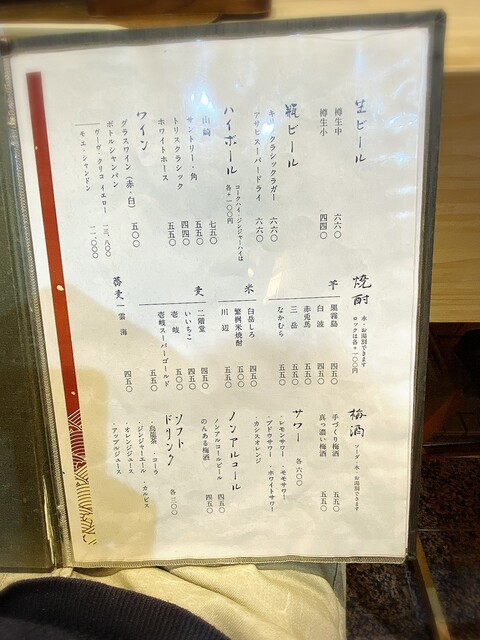 生ビール
樽生中 六六〇
樽生小 四四〇
瓶ビール
キリンクラシックラガー 六六〇
アサヒスーパードライ 六六〇
ハイボール コークハイ・ジンジャーハイは各+一〇〇円
山崎 七五〇
サントリー・角 五五〇
トリスクラシック 四四〇
ホワイトホース 五五〇
ワイン
グラスワイン(赤・白) 五〇〇
ボトルシャンパン
ヴーヴ・クリコ イエロー 一三、八〇〇
モエ・シャンドン 一一、〇〇〇
焼酎 水・お湯割できます ロックは各+一〇〇円
芋
黒霧島 四五〇
白波 四五〇
赤兎馬 五五〇
三岳 五五〇
なかむら 五五〇
米
白岳しろ 四五〇
繁桝米焼酎 五〇〇
川辺 五五〇
麦
二階堂 四五〇
いいちこ 四五〇
壱岐 五〇〇
壱岐スーパーゴールド 五五〇
蕎麦
雲海 四五〇
梅酒 ソーダ・水・お湯割できます
手づくり梅酒 五五〇
真っ濃い梅酒 五五〇
サワー 各六〇〇
・レモンサワー ・モモサワー
・ブドウサワー ・ホワイトサワー
・カシスオレンジ
ノンアルコール
ノンアルコールビール 四五〇
のんある梅酒 四五〇
ソフトドリンク 各三〇〇
・烏龍茶 ・コーラ
・ジンジャーエール ・カルピス
・オレンジジュース
・アップルジュース